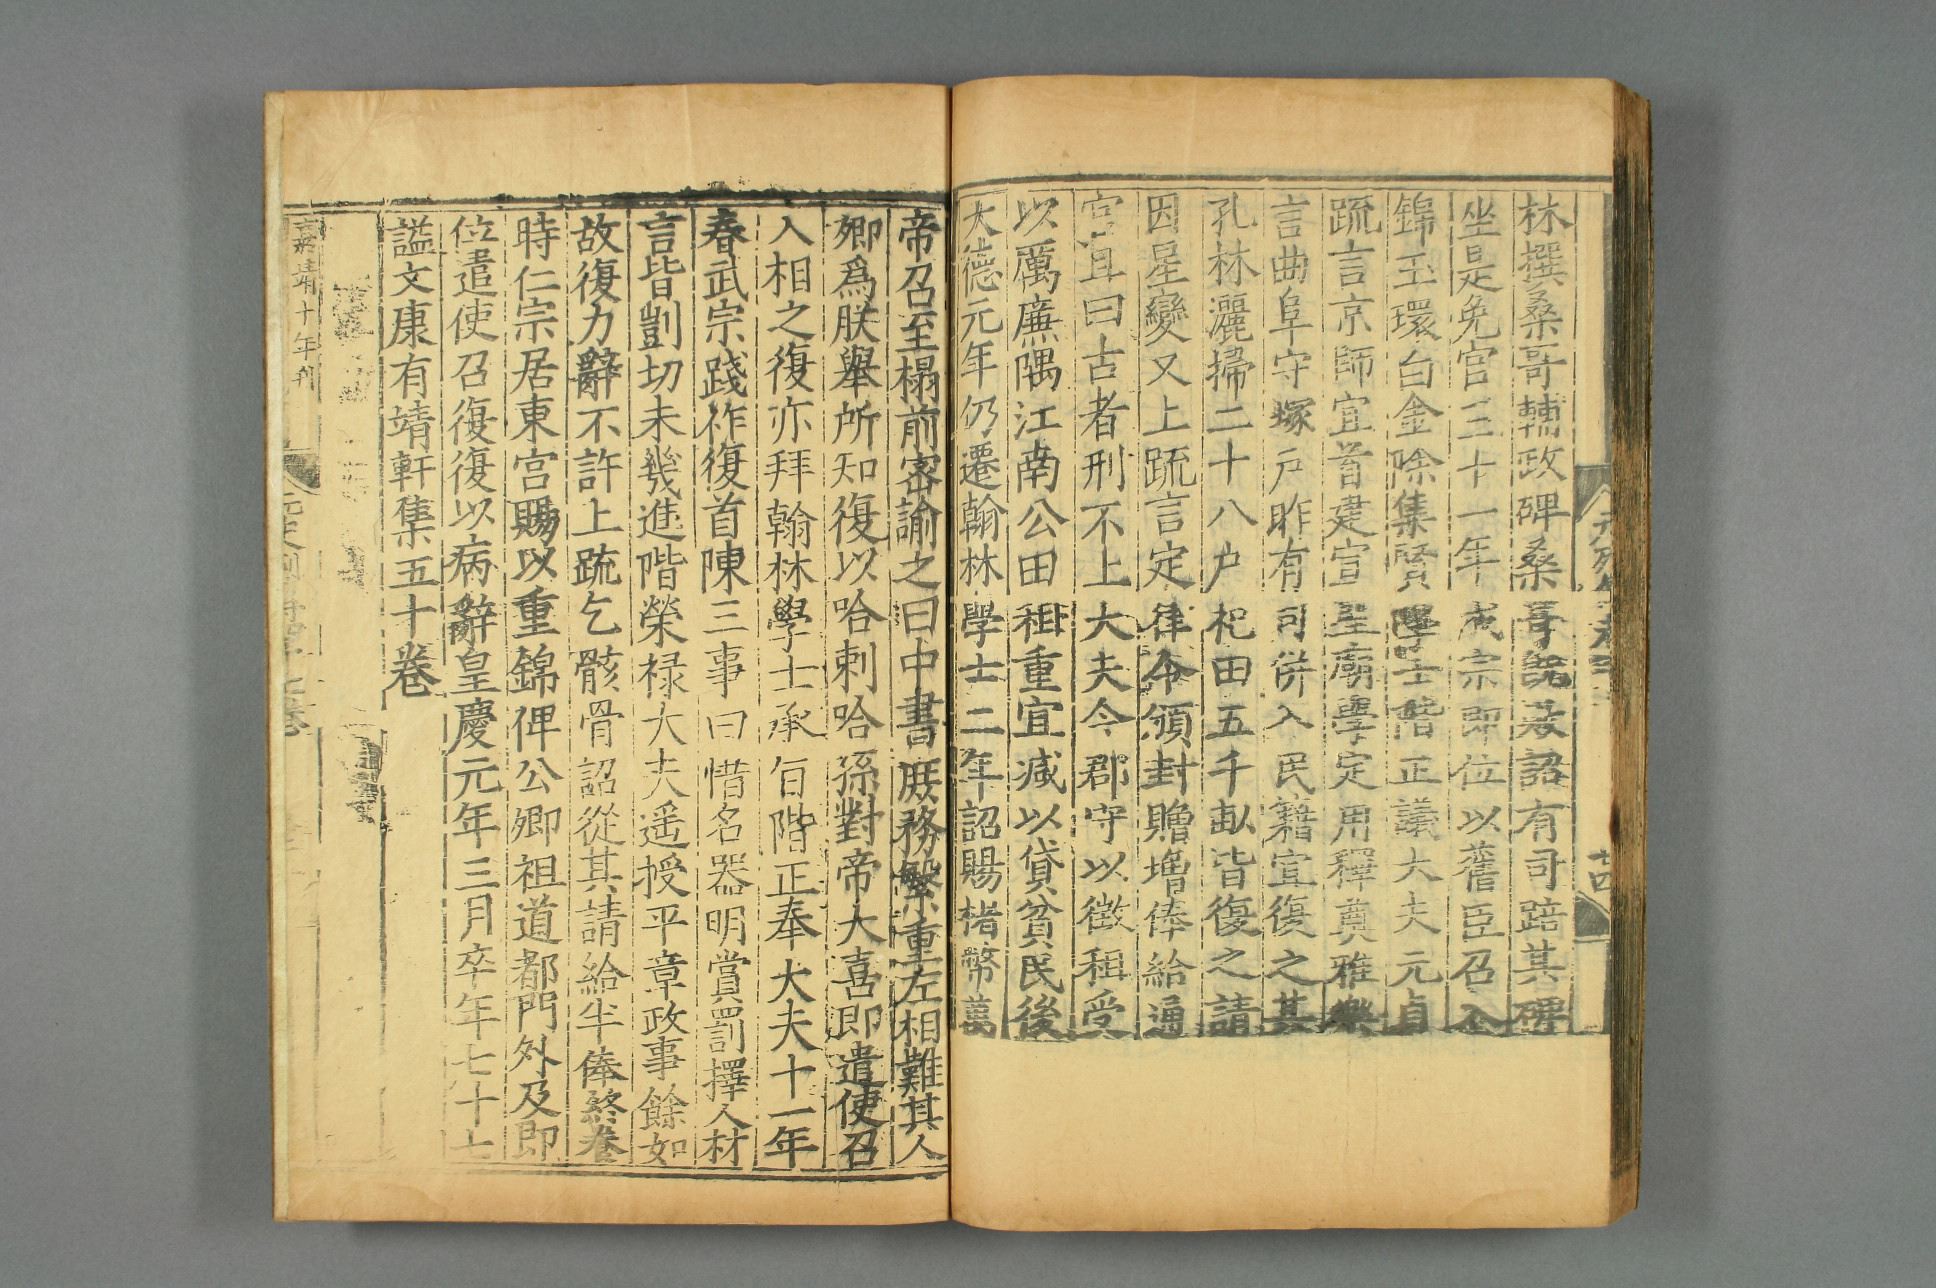 林撰桑哥輔政碑桑哥既敗詔有司踣其碑
坐是免官三十一年成宗即位以舊臣召入
錦玉環白金除集賢學士階正議大夫元貞
疏言京師宜首建宣聖廟學定用釋奠雅樂
言曲阜守塚户昨有司併入民籍宜復之其
孔林灑掃二十八户祀田五千畝皆復之請
因星變又上疏言定律令頒封贈增俸給通
官且曰古者刑不上大夫今郡守以徵租受
以厲廉隅江南公田租重宜减以貸貧民後
大德元年仍遷翰林學士二年詔賜楮幣萬
帝召至榻前密諭之曰中書庶務繁重左相難其人
卿爲朕舉所知復以哈剌哈孫對帝大喜即遣使召
入相之復亦拜翰林學士承旨階正奉大夫十一年
春武宗踐祚復首陳三事曰惜名器明賞罰擇人材
言皆剴切未幾進階榮禄大夫遥授平章政事餘如
故復力辭不許上疏乞骸骨詔從其請給半俸終養
時仁宗居東宮賜以重錦俾公卿祖道都門外及即
位遣使召復復以病辭皇慶元年三月卒年七十七
謚文康有靖軒集五十卷
嘉靖十年刊